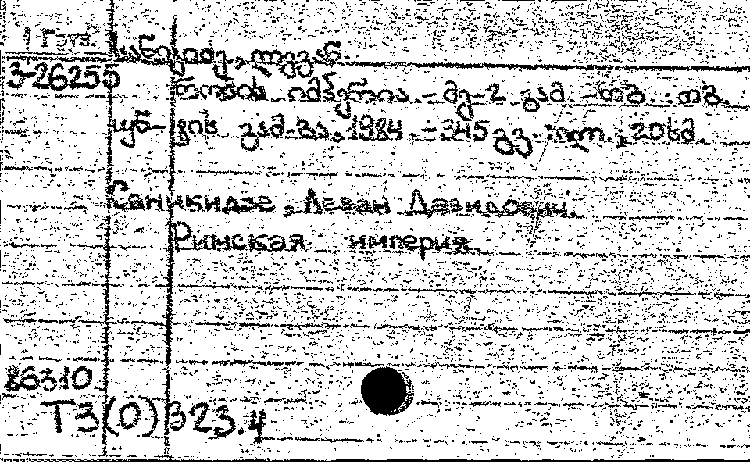 1 Гртз
3-26255 სანიკიძე, ლევან.
რომის იმპერია. - მე-2 გამ. - თბ.: თბ.
უნ-ტის გამ-ბა, 1984. - 345 გვ.: ილ., 20 სმ.
Саникидзе, Леван Давидович.
Римская империя
86310
Т3(0)323.4